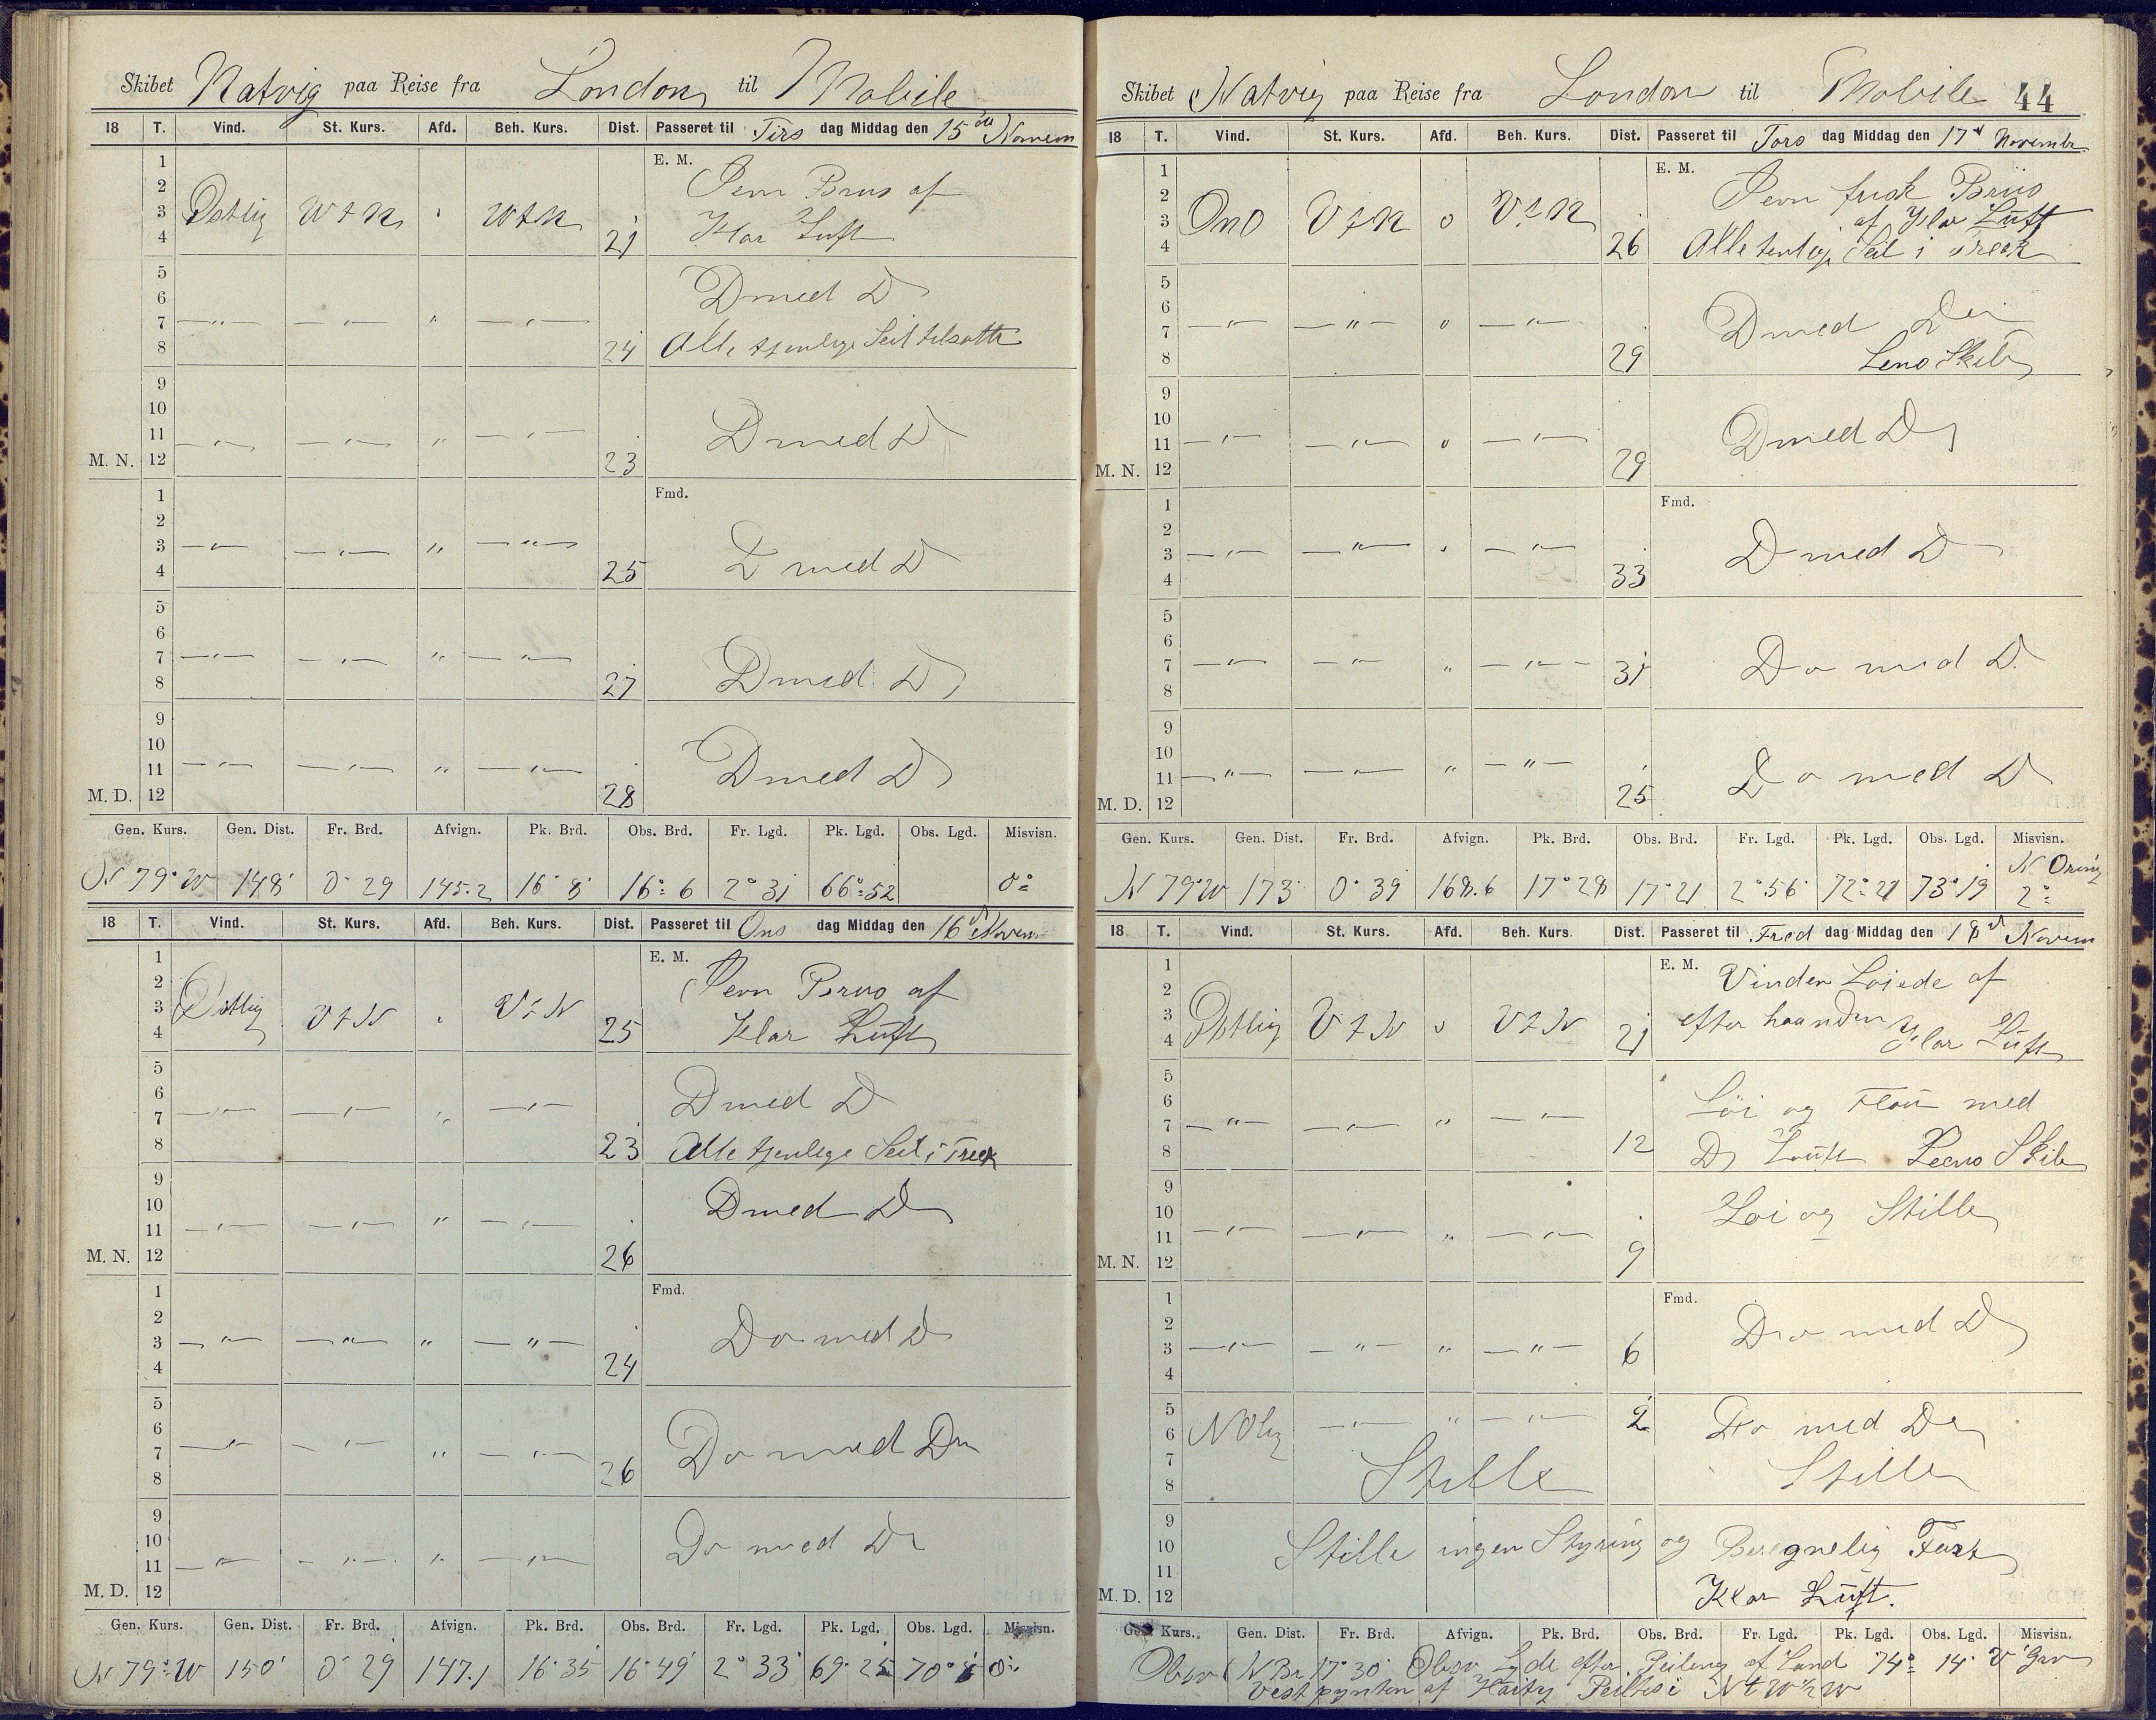 Skibet Natvig paa Reise fra London til Mobile
18 T. Vind. St. Kurs. Afd. Beh. Kurs. Dist. Passeret til Tirs dag Middag den 15de Novem
E. M.
1
2 Jevn Brus af
3 Ostlig WtN " WtN Klar Luft
4 21
5
6 D med D
7 —"— —"— " —"—
8 24 Alle tjenlige Seil tilsatte
9
10
11 —"— —"— " —"— D med D
M. N. 12 23
Fmd.
1
2
3 —"— —"— " —"— D med D
4 25
5
6
7 —"— —"— " —"— D med D
8 27
9
10
11 —"— —"— " —"— D med D
M. D. 12 28
Gen. Kurs. Gen. Dist. Fr. Brd. Afvign. Pk. Brd. Obs. Brd. Fr. Lgd. Pk. Lgd. Obs. Lgd. Misvisn.
N 79° W 148' 0° 29 145.2 16° 8' 16° 6 2° 31 66° 52 0°
18 T. Vind. St. Kurs. Afd. Beh. Kurs. Dist. Passeret til Ons dag Middag den 16d Novem
E. M.
1
2 Jevn Brus af
3 Ostlig VtN " VtN
4 25 Klar Luft
5
6 D med D
7 —"— —"— " —"—
8 23 Alle tjenlige Seil i Treck
9
10 D med D
11 —"— —"— " —"—
M. N. 12 26
Fmd.
1
2
3 —"— —"— " —"— Do med D
4 24
5
6
7 —"— —"— " —"— Do med Do
8 26
9
10 Do med D
11 —"— —"— " —"—
M. D. 12
Gen. Kurs. Gen. Dist. Fr. Brd. Afvign. Pk. Brd. Obs. Brd. Fr. Lgd. Pk. Lgd. Obs. Lgd. Misvisn.
N 79° W 150' 0° 29' 147.1 16° 35 16° 49' 2° 33' 69° 25 70° 0°
Skibet Natvig paa Reise fra London til Mobile 44
18 T. Vind. St. Kurs. Afd. Beh. Kurs. Dist. Passeret til Tors dag Middag den 17d Novembr
E. M.
1 Jevn frisk Brus
2 af Klar Luft
3 OnO VtN o VtN
4 26 Alle tenlige Seil i Treck
5
6 D med Do
7 —"— —"— o —"—
8 29 Lens Skib
9
10
11 —"— —"— o —"— D med D
M. N. 12 29
Fmd.
1
2
3 —"— —"— " —"— D med D
4 33
5
6
7 —"— —"— " —"— 31 Do med D
8
9
10
11 —"— —"— " —"— Do med D
M. D. 12 25
Gen. Kurs. Gen. Dist. Fr. Brd. Afvign. Pk. Brd. Obs. Brd. Fr. Lgd. Pk. Lgd. Obs. Lgd. Misvisn.
N 79° W 173 0° 39 168.6 17° 28 17° 21 2° 56 72° 21 73° 19 2°
18 T. Vind. St. Kurs. Afd. Beh. Kurs Dist. Passeret til Fred dag Middag den 18d Novem
E. M.
1 Vinden Loiede af
2
3 efter haanden
4 Ostlig VtN o VtN 21 Klar Luft
5
6 Löi og Flau med
7 —"— —"— " —"—
8 12 D Luft Lens Skib
9
10 Loi og Stille
11 —"— —"— " —"—
M. N. 12 9
Fmd.
1
2 Do med D
3 —"— —"— " —"— 6
4
5 —"— " —"— 2 Do med Do
6 NOlig
7
8 Stille Stille
9
10 Stille ingen Styring og Beregnelig Fart
11
M. D. 12 Klar Luft.
Gen. Kurs. Gen. Dist. Fr. Brd. Afvign. Pk. Brd. Obs. Brd. Fr. Lgd. Pk. Lgd. Obs. Lgd. Misvisn.
Obsv N Br 17° 30' Obsv Lgde efter Peiling af Land 74° 14' V Grv
Vestpynten af Haity Peiltes i NtW½W